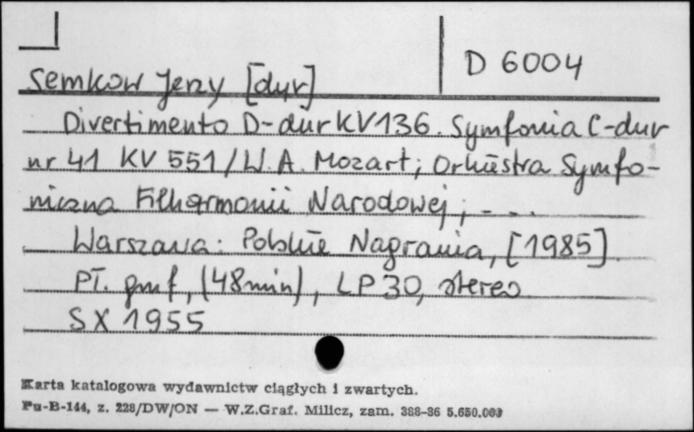 D 6004
Semkow Jerzy [dyr]
Divertimento D-dur KV 136. Symfonia C-dur
nr 41 KV 551/W.A. Mozart; Orkiestra Symfo-
niczna Filharmonii Narodowej; - ...
Warszawa: Polskie Nagrania, [1985]
Pł. gmf, (48min), LP 30, stereo
SX 1955
Karta katalogowa wydawnictw ciągłych i zwartych.
Pu-B-144, z. 228/DW/ON — W.Z.Graf. Milicz, zam. 388-86 5.650.000